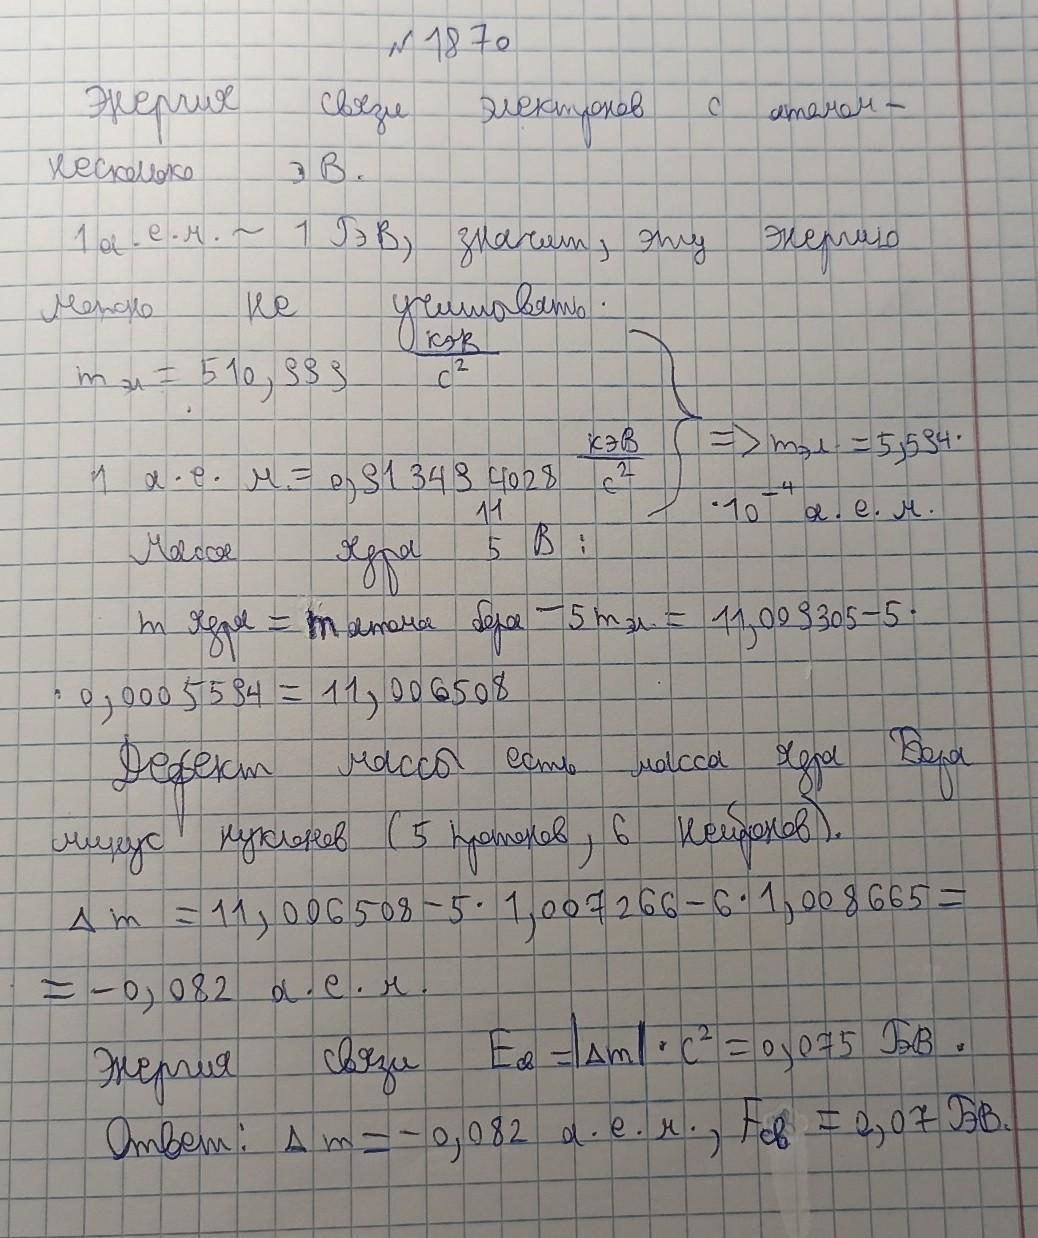 №1870
Энергия связи электронов с атомом –
несколько эВ.
1 а.е.м. ~ 1 ГэВ, значит, эту энергию
можно не учитывать.
mэл = 510,999 кэВ/c²
=> mэл = 5,594·
1 а.е.м. = 0,913494028 кэВ/c²
·10⁻⁴ а.е.м.
Масса ядра ¹¹₅B :
m ядра = m атома бора – 5 mэл = 11,009305 – 5·
· 0,0005594 = 11,006508
Дефект массы есть масса ядра Бора
минус нуклонов (5 протонов, 6 нейтронов).
Δm = 11,006508 – 5·1,007266 – 6·1,008665 =
= –0,082 а.е.м.
Энергия связи Eсв = |Δm|·c² = 0,075 ГэВ.
Ответ: Δm = –0,082 а.е.м., Eсв = 0,07 ГэВ.